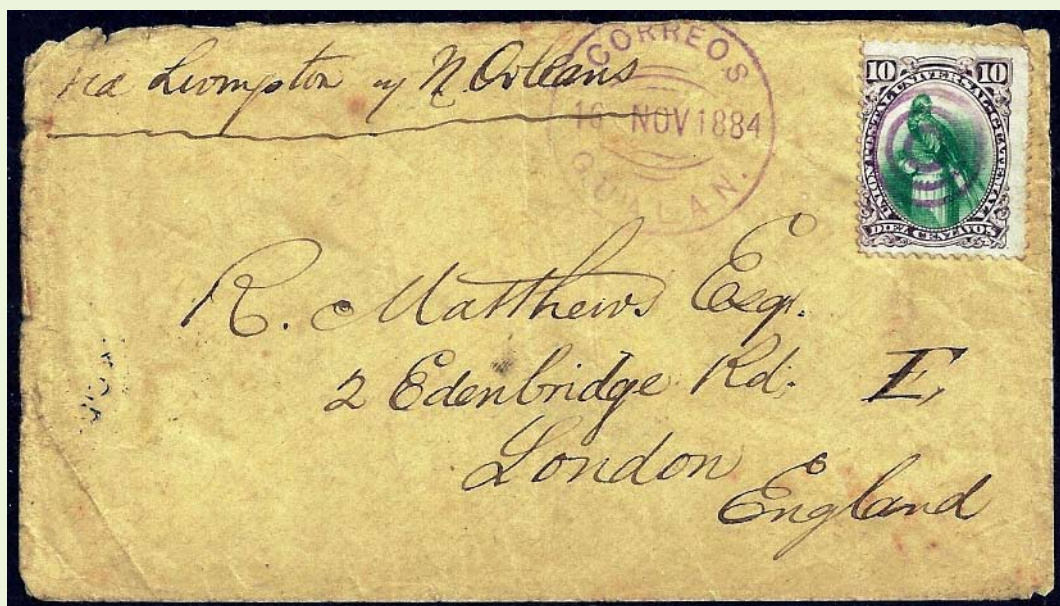 via Livingston y N. Orleans
CORREOS
16 NOV 1884
GUALAN.
10 10
UNION POSTAL UNIVERSAL GUATEMALA
DIEZ CENTAVOS
R. Matthews Esqr.
2 Edenbridge Rd. E,
London
England